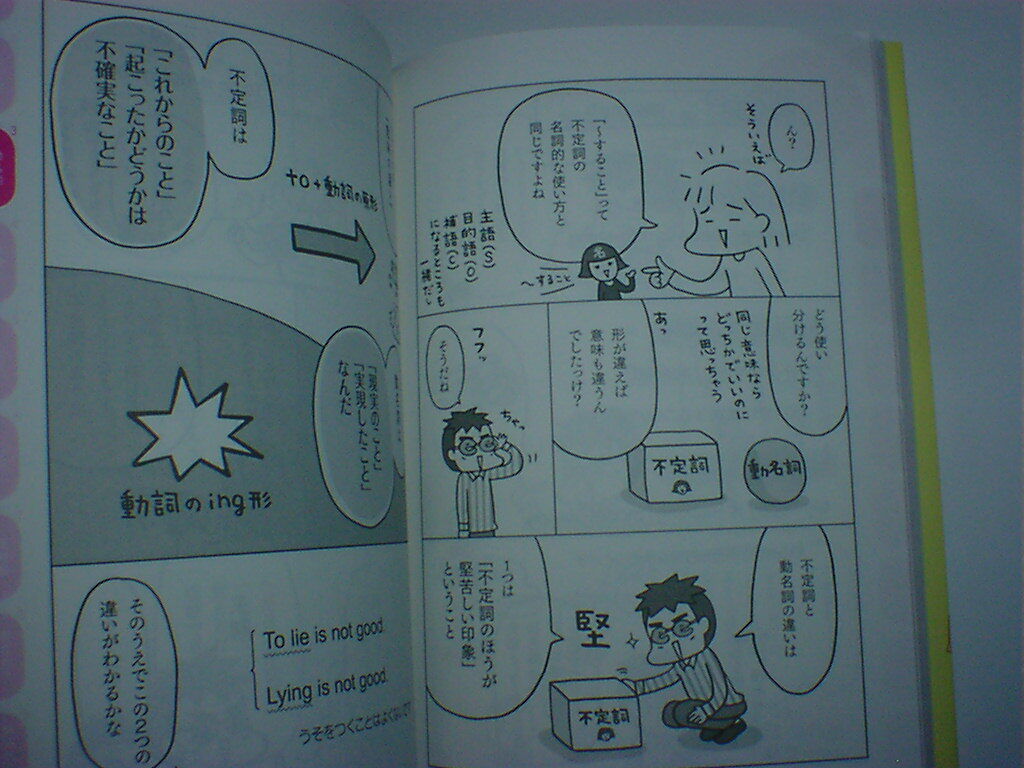 ん?
そういえば
「〜すること」って
不定詞の
名詞的な使い方と
同じですよね
〜すること
主語(S)
目的語(O)
補語(C)
になるところも
一緒だし
どう使い
分けるんですか?
同じ意味なら
どっちかでいいのに
って思っちゃう
動名詞
不定詞
あっ
形が違えば
意味も違うん
でしたっけ?
フフッ
そうだね
ちゃっ
不定詞と
動名詞の違いは
堅
不定詞
1つは
「不定詞のほうが
堅苦しい印象」
ということ
to+動詞の原形
不定詞は
「これからのこと」
「起こったかどうかは
不確実なこと」
「現実のこと」
「実現したこと」
なんだ
動詞のing形
To lie is not good.
Lying is not good.
うそをつくことはよくない
そのうえでこの2つの
違いがわかるかな